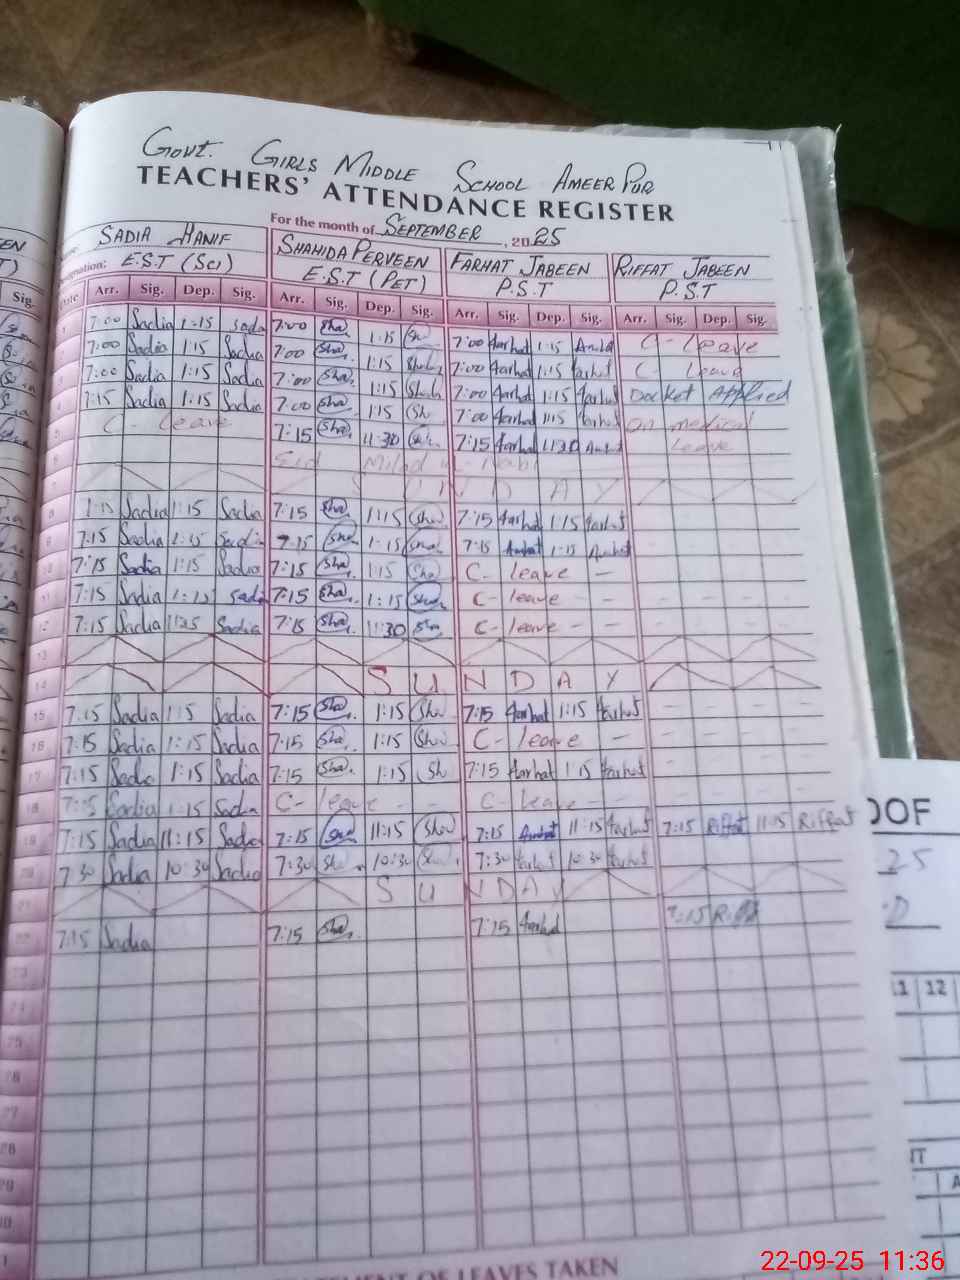 GOVT. GIRLS MIDDLE SCHOOL AMEER PUR
TEACHERS' ATTENDANCE REGISTER
For the month of SEPTEMBER, 2025
SADIA HANIF SHAHIDA PERVEEN FARHAT JABEEN RIFFAT JABEEN
E.S.T (Sci) E.S.T (PET) P.S.T P.S.T
Date Arr. Sig. Dep. Sig. Arr. Sig. Dep. Sig. Arr. Sig. Dep. Sig. Arr. Sig. Dep. Sig.
7:00 Sadia 1:15 Sadia 7:00 Sha 1:15 Sha 7:00 Farhat 1:15 Farhat C- Leave
7:00 Sadia 1:15 Sadia 7:00 Sha 1:15 Sha 7:00 Farhat 1:15 Farhat C- Leave
7:00 Sadia 1:15 Sadia 7:00 Sha 1:15 Sha 7:00 Farhat 1:15 Farhat Docket Applied
7:15 Sadia 1:15 Sadia 7:00 Sha 1:15 Sha 7:00 Farhat 1:15 Farhat On medical
C- Leave 7:15 Sha 11:30 Sha 7:15 Farhat 11:30 Farhat Leave
Eid Milad
SUNDAY
8 7:15 Sadia 1:15 Sadia 7:15 Sha 1:15 Sha 7:15 Farhat 1:15 Farhat
9 7:15 Sadia 1:15 Sadia 7:15 Sha 1:15 Sha 7:15 Farhat 1:15 Farhat
10 7:15 Sadia 1:15 Sadia 7:15 Sha 1:15 Sha C- Leave -
11 7:15 Sadia 1:15 Sadia 7:15 Sha 1:15 Sha C- leave - -
12 7:15 Sadia Sadia 7:15 Sha 11:30 Sha C- leave - -
13
14 SUNDAY
15 7:15 Sadia 1:15 Sadia 7:15 Sha 1:15 Sha 7:15 Farhat 1:15 Farhat
16 7:15 Sadia 1:15 Sadia 7:15 Sha 1:15 Sha C- leave -
17 7:15 Sadia 1:15 Sadia 7:15 Sha 1:15 Sh 7:15 Farhat 1:15 Farhat
18 7:15 Sadia 1:15 Sadia C- leave - - C- Leave - -
19 7:15 Sadia 11:15 Sadia 7:15 Sha 11:15 Sha 7:15 Farhat 11:15 Farhat 7:15 Riffat 11:15 Riffat
20 7:30 Sadia 10:30 Sadia 7:30 Sha 10:30 Sha 7:30 Farhat 10:30 Farhat
21 SUNDAY
22 7:15 Sadia 7:15 Sha 7:15 Farhat 7:15 Riffat
23
25
26
27
28
29
LEAVES TAKEN
OOF
25
11 12
22-09-25 11:36